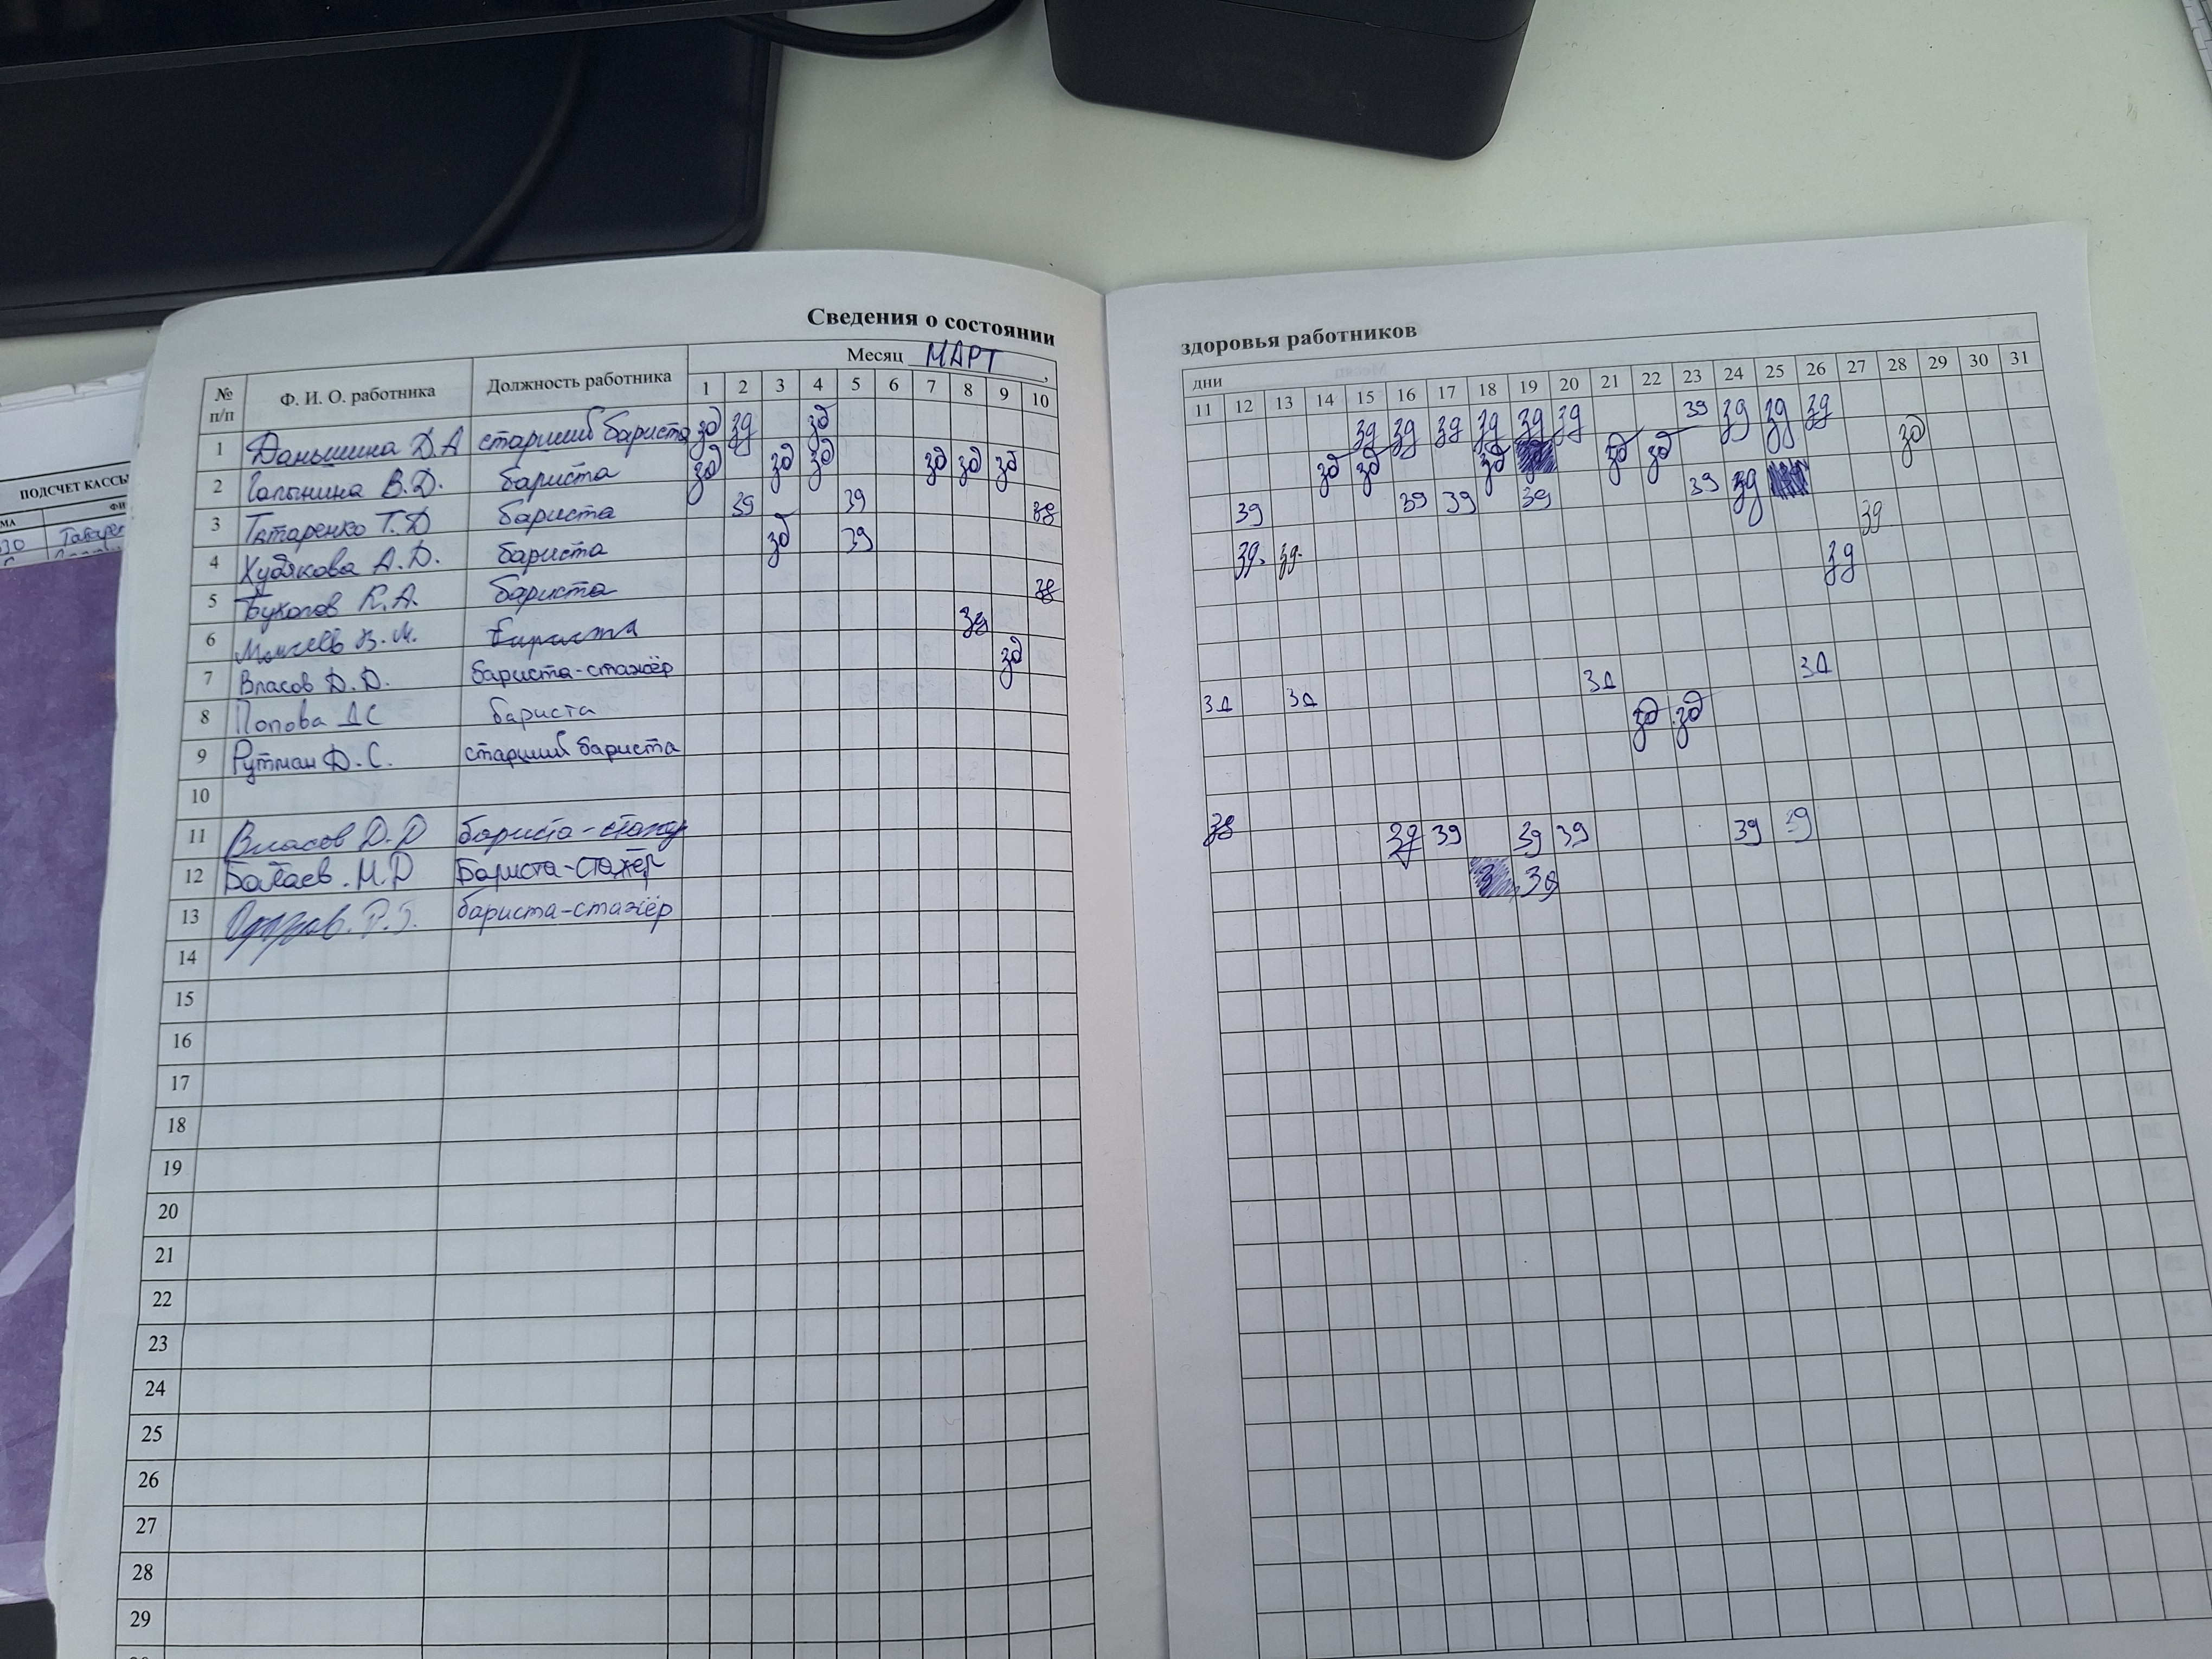 Сведения о состоянии здоровья работников
№ п/п Ф. И. О. работника Должность работника Месяц МАРТ, дни
1 2 3 4 5 6 7 8 9 10 11 12 13 14 15 16 17 18 19 20 21 22 23 24 25 26 27 28 29 30 31
1 Даньшина Д.А старший бариста зд зд зд зд зд зд зд зд зд зд зд зд зд
2 Галынина В.Д. бариста зд зд зд зд зд зд зд зд зд зд зд зд
3 Татаренко Т.Д бариста зд зд зд зд зд зд зд зд зд
4 Худякова А.Д. бариста зд зд зд. зд. зд
5 К.А. бариста зд зд
6 В.М. бариста зд
7 Власов Д.Д. бариста-стажёр зд
8 Попова ДС бариста зд зд зд зд
9 Рутман Д.С. старший бариста зд зд
10
11 Власов Д.Д бариста-стажер зд зд зд зд зд зд зд
12 Батаев.М.Д Бариста-стажёр З зд
13 бариста-стажёр
14
15
16
17
18
19
20
21
22
23
24
25
26
27
28
29
ПОДСЧЕТ КАССЫ